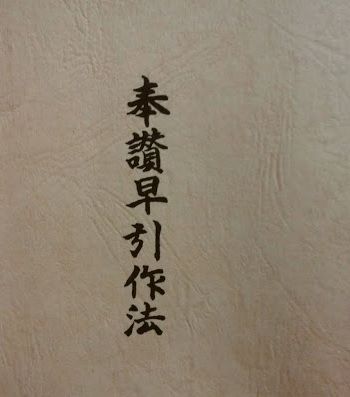 奉讃早引作法